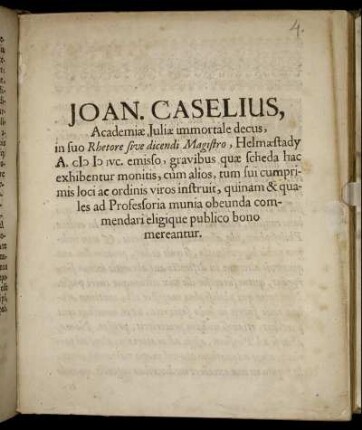 4.
JOAN. CASELIUS,
Academiæ Juliæ immortale decus,
in suo Rhetore sive dicendi Magistro, Helmæstady
A. cIↃ IↃ ıvc. emisso, gravibus quæ scheda hac
exhibentur monitis, cùm alios, tum sui cumpri-
mis loci ac ordinis viros instruit, quinam & qua-
les ad Professoria munia obeunda com-
mendari eligique publico bono
mereantur.